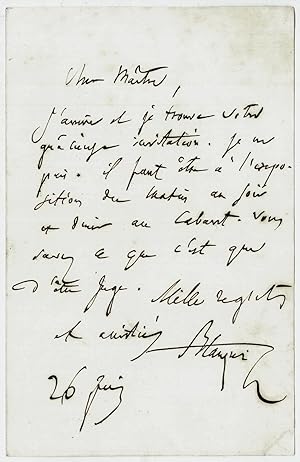 Cher Maître,
J'arrive et je trouve votre
gracieuse invitation. Je ne
puis. il faut être à l'expo-
sition du matin au soir
et dîner au Cabaret. Vous
savez ce que c'est que
d'être Juge. Mille regrets
et amitiés
26 Juin